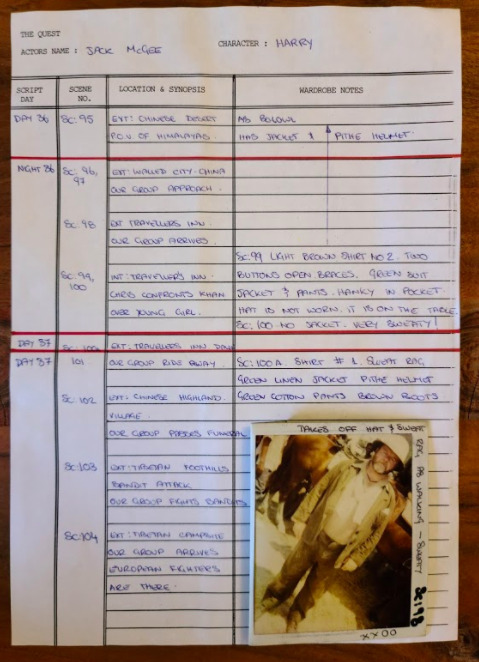 THE QUEST
ACTORS NAME : JACK McGEE CHARACTER : HARRY
SCRIPT DAY SCENE NO. LOCATION & SYNOPSIS WARDROBE NOTES
DAY 36 SC. 95 EXT: CHINESE DESERT AS BELOW
P.O.V OF HIMALAYAS. HAS JACKET & PITHE HELMET.
NIGHT 36 SC. 96, EXT: WALLED CITY-CHINA
97 OUR GROUP APPROACH.
SC. 98 EXT TRAVELLERS INN.
OUR GROUP ARRIVES.
SC. 99 LIGHT BROWN SHIRT NO 2. TWO
SC. 99, INT: TRAVELLERS INN. BUTTONS OPEN BRACES. GREEN SUIT
100 CHRIS CONFRONTS KHAN JACKET & PANTS. HANKY IN POCKET.
OVER YOUNG GIRL. HAT IS NOT WORN. IT IS ON THE TABLE.
SC. 100-NO JACKET. VERY SWEATY!
DAY 37 EXT: TRAVELLERS INN DAWN
DAY 37 101 OUR GROUP RIDE AWAY. SC: 100A. SHIRT # 1. SWEAT RAG
GREEN LINEN JACKET PITHE HELMET
SC. 102 EXT: CHINESE HIGHLAND. GREEN COTTON PANTS BROWN BOOTS
VILLAGE.
OUR GROUP PASSES FUNERAL
SC. 103 EXT: TIBETAN FOOTHILLS
BANDIT ATTACK
OUR GROUP FIGHTS BANDITS
SC. 104 EXT: TIBETAN CAMPSITE
OUR GROUP ARRIVES
EUROPEAN FIGHTERS
ARE THERE.
TAKES OFF HAT & SWEAT
RAG AS WALKING - SWEATY SC: 98
XXOO